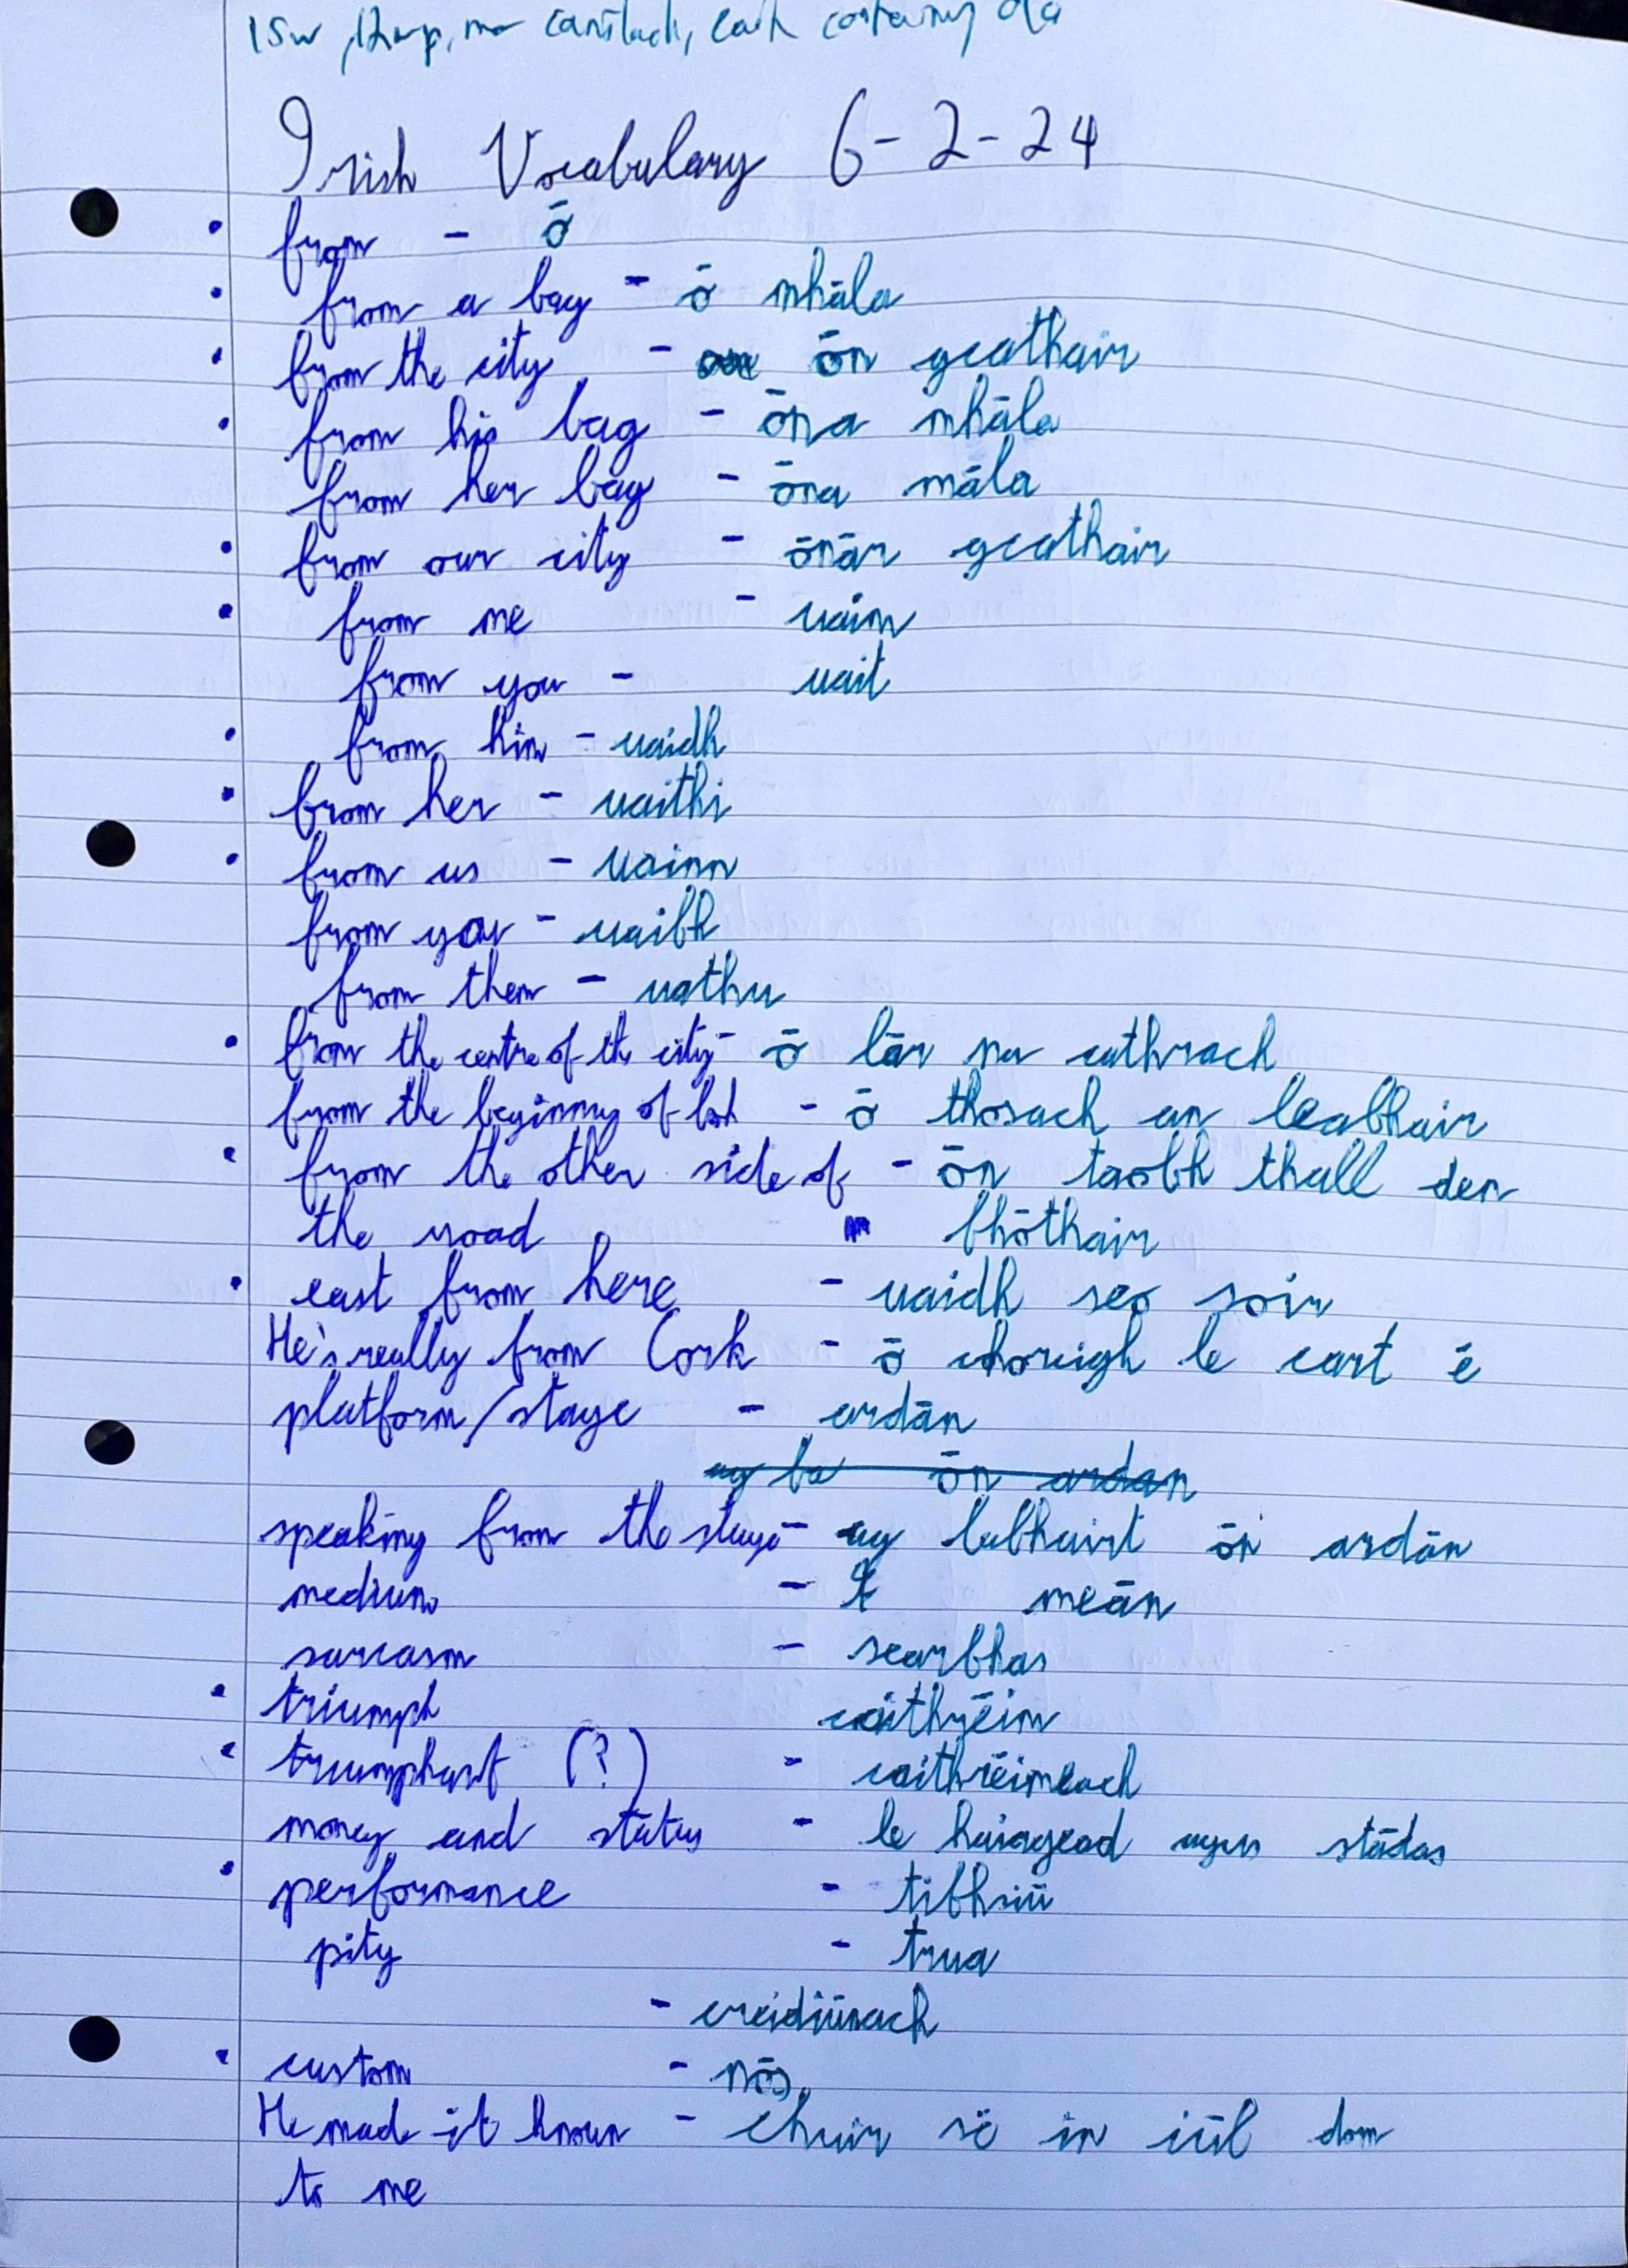 Irish Vocabulary 6-2-24
from - ō
from a bag - ō mhāla
from the city - ōn gcathair
from his bag - ōna mhāla
from her bag - ōna māla
from our city - ōnār gcathair
from me - uaim
from you - uait
from him - uaidh
from her - uaithi
from us - uainn
from you - uaibh
from them - uathu
from the centre of the city - ō lār na cathrach
from the beginning of - ō thosach an leabhair
from the other side of - ōn taobh thall den
the road bhōthair
east from here - uaidh seo soir
He's really from Cork - ō chorcigh le cart ē
platform/stage - ardān
ag ba ōn ardan
speaking from the stage - ag labhairt ōn ardān
medium - meān
sarcasm - searbhas
triumph caithrēim
triumphant (?) - caithrēimeach
money and status - le hairgead agus stādas
performance - tibhsiū
pity - trua
- creidiūnach
custom - nōs
He made it known - chuir sē in iūl dom
to me